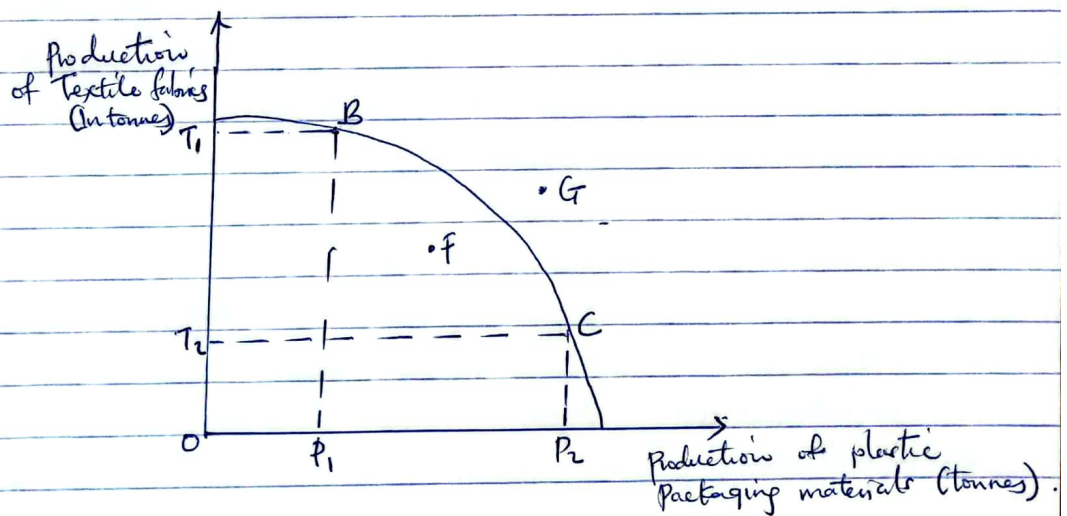 Production
of Textile fabrics
(In tonnes)
T1
B
G
F
T2
C
O
P1
P2
Production of plastic
Packaging materials (tonnes).